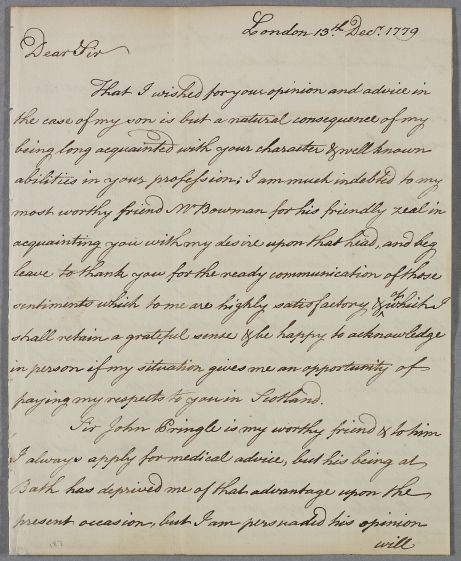 London 13th Decr. 1779
Dear Sir
That I wished for your opinion and advice in
the case of my son is but a natural consequence of my
being long acquainted with your character & well known
abilities in your profession; I am much indebted to my
most worthy friend Mr Bowman for his friendly zeal in
acquainting you with my desire upon that head, and beg
leave to thank you for the ready communication of those
sentiments which to me are highly satisfactory, & of which I
shall retain a grateful sense & be happy to acknowledge
in person if my situation gives me an opportunity of
paying my respects to you in Scotland.
Sir John Pringle is my worthy friend & to him
I always apply for medical advice, but his being at
Bath has deprived me of that advantage upon the
present occasion, but I am persuaded his opinion
will
187